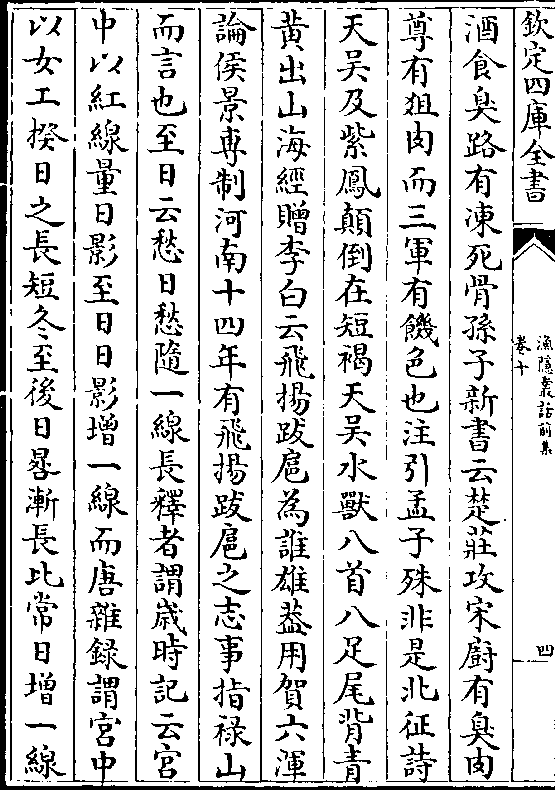 欽定四庫全書
漁隱叢話前集
卷十
四
酒食臭路有凍死骨孫子新書云楚莊攻宋廚有臭肉
尊有狙肉而三軍有饑色也注引孟子殊非是北征詩
天吴及紫鳳顛倒在短褐天吴水獸八首八足尾背青
黄出山海經贈李白云飛揚跋扈為誰雄葢用賀六渾
論侯景專制河南十四年有飛揚跋扈之志事指禄山
而言也至日云愁日愁隨一線長釋者謂歲時記云宫
中以紅線量日影至日日影增一線而唐雜録謂宫中
以女工揆日之長短冬至後日晷漸長比常日增一線